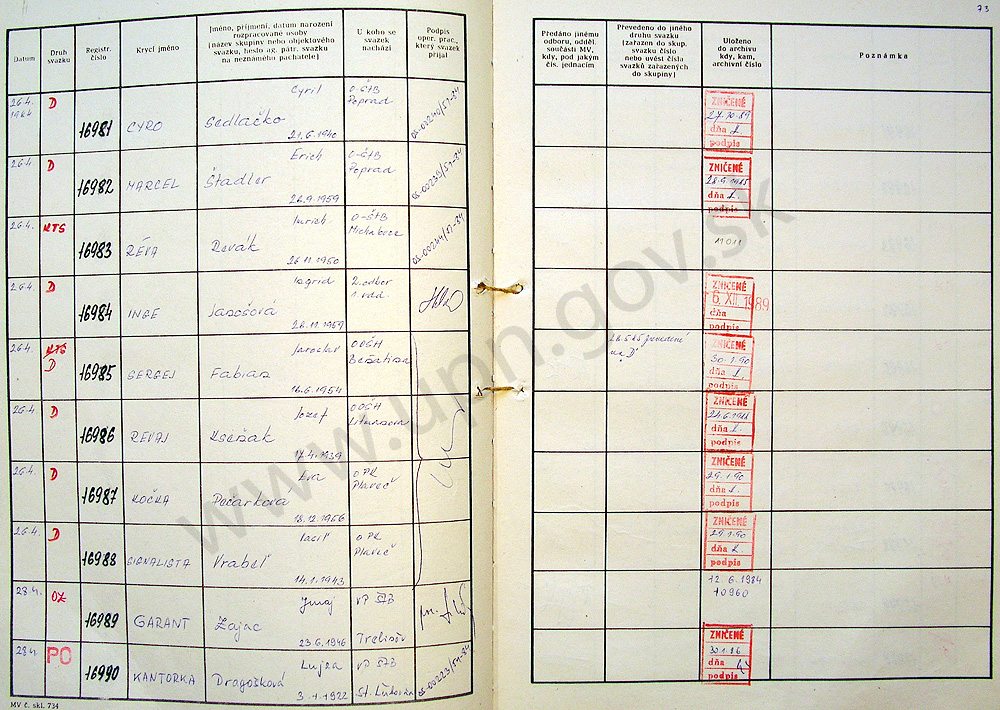 73
Datum
Druh svazku
Registr. číslo
Krycí jméno
Jméno, příjmení, datum narození
rozpracované osoby
(název skupiny nebo objektového
svazku, heslo ag. pátr. svazku
na neznámého pachatele)
U koho se
svazek
nachází
Podpis
oper. prac.,
který svazek
přijal
Předáno jinému
odboru, odděl.
součásti MV,
kdy, pod jakým
čís. jednacím
Převedeno do jiného
druhu svazku
(zařazen do skup.
svazku číslo
nebo uvést čísla
svazků zařazených
do skupiny)
Uloženo
do archivu
kdy, kam,
archivní číslo
Poznámka
26.4. 1984 D 16981 CYRO Cyril Sedlačko 21.6.1940 O-ŠTB Poprad OS-00240/51-84
ZNIČENÉ 27.10.89 dňa podpis
26.4. D 16982 MARCEL Erich Štadler 26.9.1959 O-ŠTB Poprad OS-00239/51-84
ZNIČENÉ dňa podpis
26.4. KTS 16983 RÉVA Revák 26.11.1950 O-ŠTB Michalovce OS-00244/51-84
11011
26.4. D 16984 INGE Ingrid Jasošová 26.11.1959 2.odbor
ZNIČENÉ 6. XII. 1989 dňa podpis
26.4. KTS D 16985 SERGEJ Jaroslav Fabian 16.6.1954
"D"
ZNIČENÉ 30.1.90 dňa podpis
26.4 D 16986 REVAJ Jozef 17.4.1939
ZNIČENÉ dňa podpis
26.4. D 16987 KOČKA Eva Pecarková 18.12.1956 OPK Plaveč
ZNIČENÉ 29.1.90 dňa podpis
26.4. D 16988 SIGNALISTA Vrabeľ 14.1.1943 OPK Plaveč
ZNIČENÉ 29.1.90 dňa podpis
28.4. 16989 GARANT Juraj Zajac 23.6.1946 VP ŠTB Trebišov
12.6.1984
10960
28.4. PO 16990 KANTORKA Lujza Dragošková 3.1.1922 VP ŠTB St. Ľubovňa OS-00223/51-84
ZNIČENÉ 30.1.86 dňa podpis
MV č. skl. 734
www.upn.gov.sk